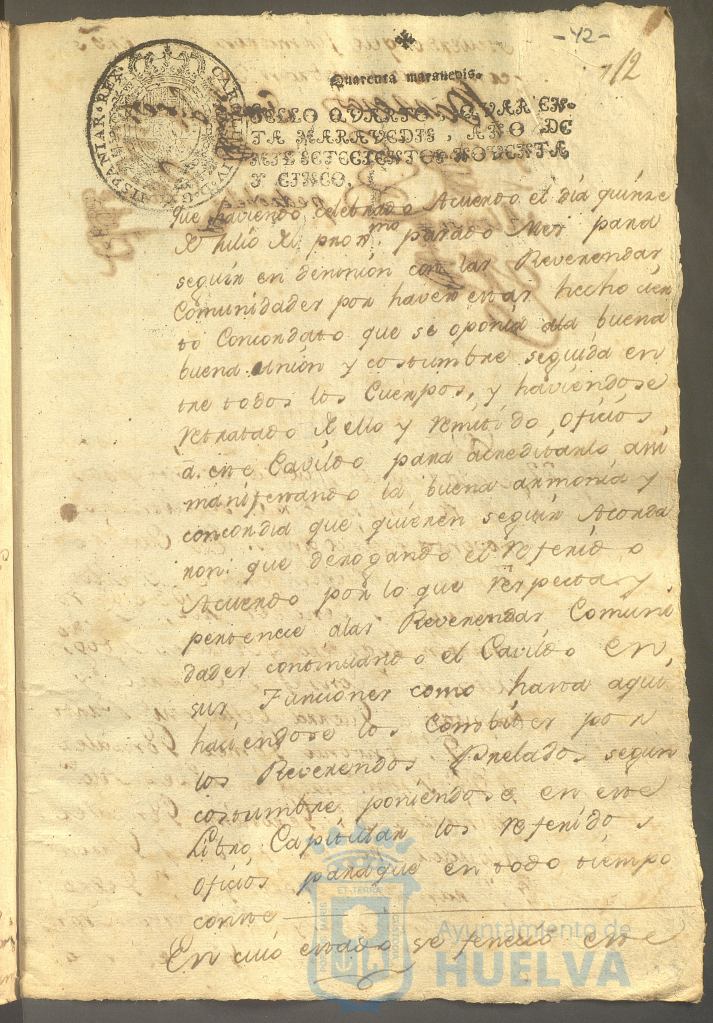 -42-
12
Quarenta maravedis.
HISPANIAR. REX. CAROLUS IV. D. G.
SELLO QVARTO, QVAREN-
TA MARAVEDIS, AÑO DE
MIL SETECIENTOS NOVENTA
Y CINCO.
que haviendo celebrado Acuerdo el día quinze
de Julio del prox.mo pasado Mes para
seguir en dennión con las Reverendas
Comunidades por haver estas hecho cier
to Concordato que se oponía ala buena
buena unión y costumbre seguida en
tre todos los Cuerpos, y haviéndose
retratado de ello y remitido oficios
a este Cavildo para acreditarlo assi
manifestando la buena armonía y
concordia que quieren seguir Acorda
ron: que derogando el referido
Acuerdo por lo que respecta y
pertenece alas Reverendas Comuni
dades continuando el Cavildo en
sus Funciones como hasta aqui
haciéndose los combites por
los Reverendos Prelados segun
costumbre poniéndose en este
Libro Capitular los referidos
Oficios para que en todo tiempo
conste
En cuio estado se feneció este
ET TERRAE
Ayuntamiento de
HUELVA